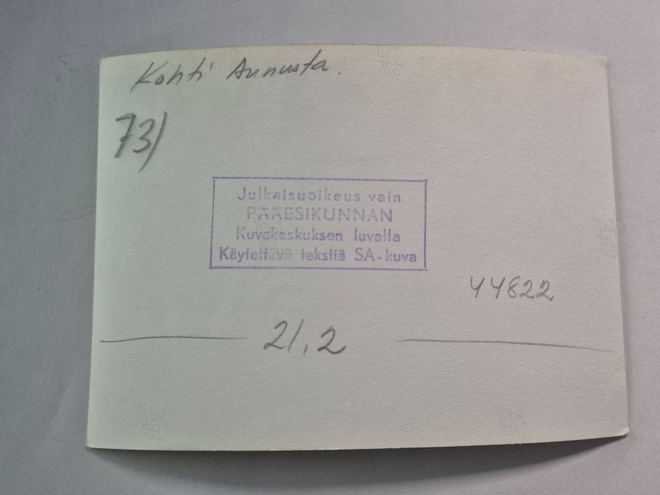 Kohti Aunusta.
73)
Julkaisuoikeus vain
PÄÄESIKUNNAN
Kuvakeskuksen luvalla
Käytettävä tekstiä SA-kuva
44822
21.2